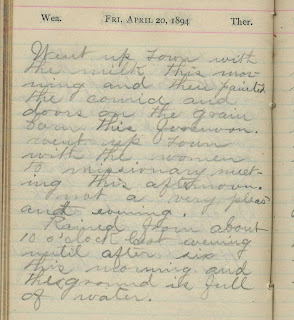 Wea. Fri. April 20, 1894 Ther.
Went up town with
the milk this mor
ning and then painted
the cornice and
doors on the grain
barn this forenoon.
went up town
with the women
to missionary meet-
ing this afternoon.
not a very pleas
ant evening.
Rained from about
10 o'clock last evening
until after six
this morning and
the ground is full
of water.